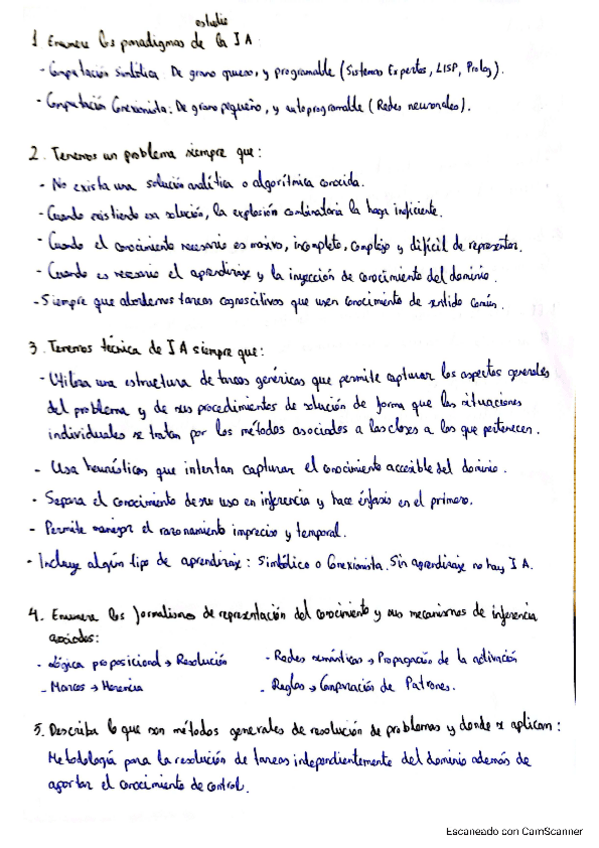 estudio
1 Enumere los paradigmas de la IA:
- Computación simbólica: De grano grueso, y programable (Sistemas Expertos, LISP, Prolog).
- Computación Conexionista: De grano pequeño, y autoprogramable (Redes neuronales).
2. Tenemos un problema siempre que:
- No exista una solución analítica o algorítmica conocida.
- Cuando existiendo esa solución, la explosión combinatoria la haga ineficiente.
- Cuando el conocimiento necesario es masivo, incompleto, complejo y difícil de representar.
- Cuando es necesario el aprendizaje y la inyección de conocimiento del dominio.
- Siempre que abordemos tareas cognoscitivas que usen conocimiento de sentido común.
3. Tenemos técnica de IA siempre que:
- Utiliza una estructura de tareas genéricas que permite capturar los aspectos generales
del problema y de sus procedimientos de solución de forma que las situaciones
individuales se tratan por los métodos asociados a las clases a las que pertenecen.
- Usa heurísticas que intentan capturar el conocimiento accesible del dominio.
- Separa el conocimiento de su uso en inferencia y hace énfasis en el primero.
- Permite manejar el razonamiento impreciso y temporal.
- Incluye algún tipo de aprendizaje: Simbólico o Conexionista. Sin aprendizaje no hay IA.
4. Enumere los formalismos de representación del conocimiento y sus mecanismos de inferencia
asociados:
- Lógica proposicional → Resolución - Redes semánticas → Propagación de la activación
- Marcos → Herencia - Reglas → Comparación de Patrones.
5. Describa lo que son métodos generales de resolución de problemas y donde se aplican:
Metodología para la resolución de tareas independientemente del dominio además de
aportar el conocimiento de control.
Escaneado con CamScanner